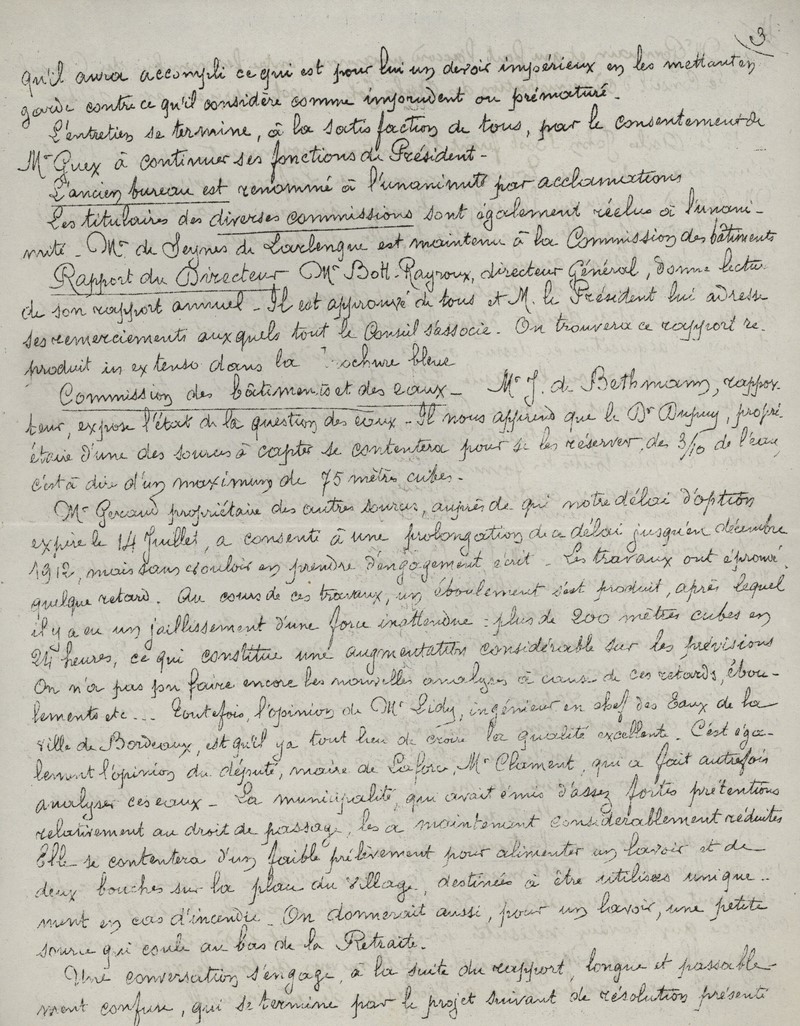 3
qu'il aura accompli ce qui est pour lui un devoir impérieux en les mettant en
garde contre ce qu'il considère comme imprudent ou prématuré.
L'entretien se termine, à la satisfaction de tous, par le consentement de
Mr Guex à continuer ses fonctions de Président -
L'ancien bureau est renommé à l'unanimité par acclamations
Les titulaires des diverses commissions sont également réélus à l'unani-
mité - Mr de Seynes de Larlengue est maintenu à la Commission des bâtiments
Rapport du Directeur Mr Bott-Rayroux, directeur Général, donne lectu
de son rapport annuel - Il est approuvé de tous et M. le Président lui adresse
ses remerciements auxquels tout le Conseil s'associe. On trouvera ce rapport re-
produit in extenso dans la brochure bleue
Commission des bâtiments et des eaux - Mr J. de Bethmann, rappor-
teur, expose l'état de la question des eaux - Il nous apprend que le Dr Dupuy, propri-
étaire d'une des sources à capter se contentera pour se les réserver, des 3/10 de l'eau
c'est à dire d'un maximum de 75 mètres cubes -
Mr propriétaire des autres sources, auprès de qui notre délai d'option
expire le 14 Juillet, a consenti à une prolongation de ce délai jusqu'en décembre
1912, mais sans vouloir en prendre d'engagement écrit - Les travaux ont éprouvé
quelque retard. Au cours de ces travaux, un éboulement s'est produit, après lequel
il y a eu un jaillissement d'une force inattendue : plus de 200 mètres cubes en
24 heures, ce qui constitue une augmentation considérable sur les prévisions
On n'a pas pu faire encore les nouvelles analyses à cause de ces retards, ébou-
lements etc... Toutefois, l'opinion de Mr Lidy, ingénieur en chef des Eaux de la
ville de Bordeaux, est qu'il y a tout lieu de croire la qualité excellente. C'est éga-
lement l'opinion du député, maire de Laforce, Mr Clament, qui a fait autrefois
analyser ces eaux - La municipalité, qui avait émis d'assez fortes prétentions
relativement au droit de passage, les a maintenant considérablement réduites
Elle se contentera d'un faible prélèvement pour alimenter un lavoir et de
deux bouches sur la place du village, destinées à être utilisées unique-
ment en cas d'incendie - On donnerait aussi, pour un lavoir, une petite
source qui coule au bas de la Retraite.
Une conversation s'engage, à la suite du rapport, longue et passable-
ment confuse, qui se termine par le projet suivant de résolution présenté